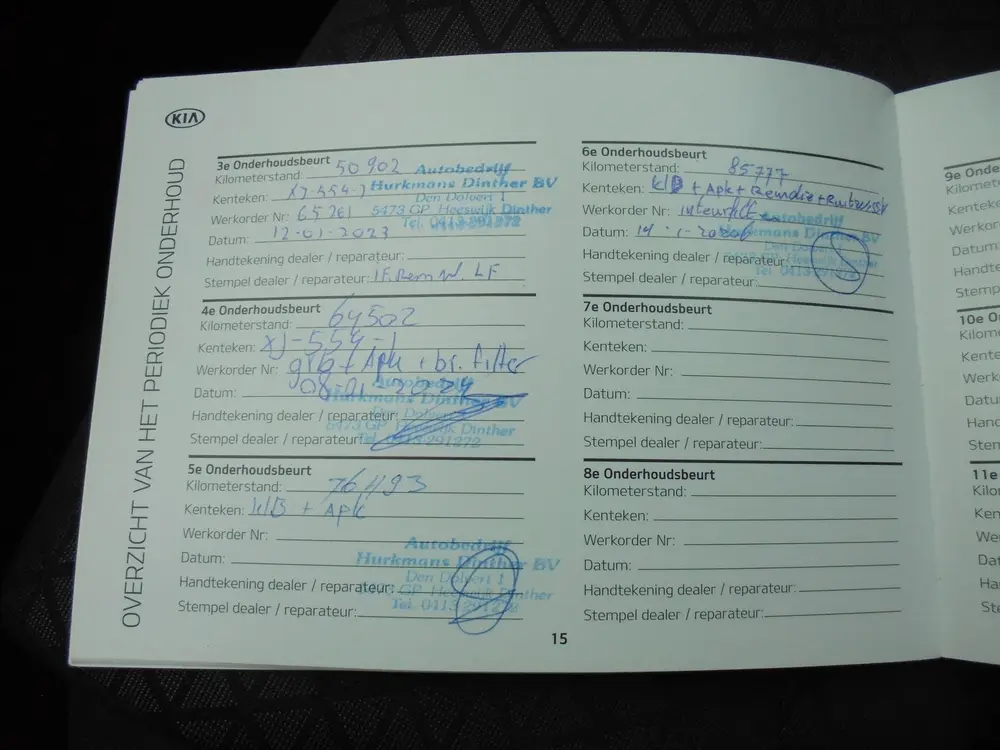 KIA
OVERZICHT VAN HET PERIODIEK ONDERHOUD
3e Onderhoudsbeurt
Kilometerstand: 50902
Kenteken: XJ-554-J
Werkorder Nr: 65261
Datum: 12-01-2023
Handtekening dealer / reparateur:
Stempel dealer / reparateur:
Autobedrijf
Hurkmans Dinther BV
Den Dolvert 1
5473 GP Heeswijk Dinther
Tel. 0413-291272
4e Onderhoudsbeurt
Kilometerstand: 64502
Kenteken: XJ-554-J
Werkorder Nr: grb + Apk + br. filter
Datum: 08-01-2024
Handtekening dealer / reparateur:
Stempel dealer / reparateur:
Autobedrijf
Hurkmans Dinther BV
Den Dolvert 1
5473 GP Heeswijk Dinther
Tel. 0413-291272
5e Onderhoudsbeurt
Kilometerstand: 76493
Kenteken: KlB + Apk
Werkorder Nr:
Datum:
Handtekening dealer / reparateur:
Stempel dealer / reparateur:
Autobedrijf
Hurkmans Dinther BV
Den Dolvert 1
5473 GP Heeswijk Dinther
Tel. 0413-291272
6e Onderhoudsbeurt
Kilometerstand: 85777
Kenteken: KlB + Apk +
Werkorder Nr:
Datum:
Handtekening dealer / reparateur:
Stempel dealer / reparateur:
Autobedrijf
Hurkmans Dinther BV
Den Dolvert 1
5473 GP Heeswijk Dinther
Tel. 0413-291272
7e Onderhoudsbeurt
Kilometerstand:
Kenteken:
Werkorder Nr:
Datum:
Handtekening dealer / reparateur:
Stempel dealer / reparateur:
8e Onderhoudsbeurt
Kilometerstand:
Kenteken:
Werkorder Nr:
Datum:
Handtekening dealer / reparateur:
Stempel dealer / reparateur:
15
9e Onder
Kilomete
Kenteke
Werkor
Datum
Handte
Stemp
10e O
Kilom
Kente
Werk
Datu
Hand
Sten
11e
Kilo
Ken
We
Da
Ha
Ste